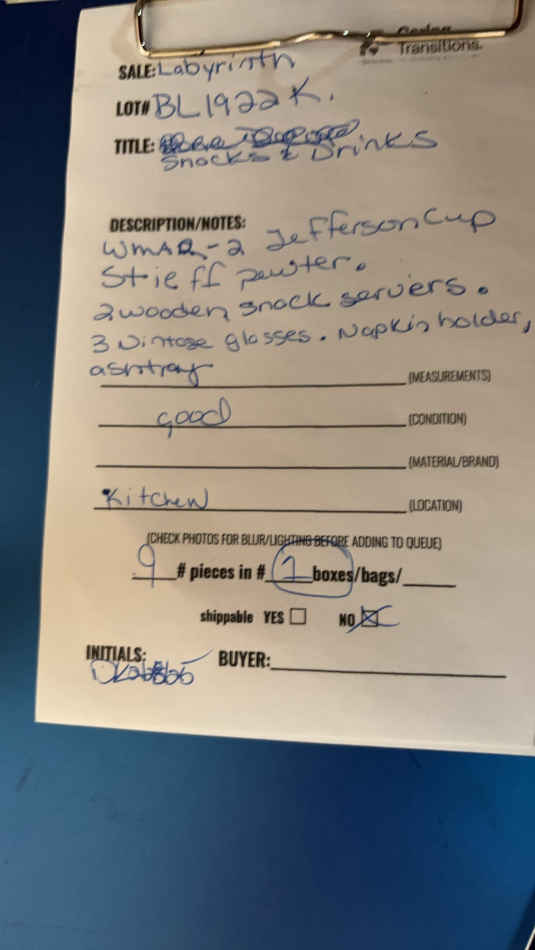 Caring
Transitions.
SALE: Labyrinth
LOT# BL1922K.
TITLE:
Snocks & Drinks
DESCRIPTION/NOTES:
WMAR-2 Jefferson Cup
Stieff pewter.
2 wooden snock servers.
3 Vintage glosses. Napkin holder,
ashtray (MEASUREMENTS)
good (CONDITION)
(MATERIAL/BRAND)
Kitchen (LOCATION)
(CHECK PHOTOS FOR BLUR/LIGHTING BEFORE ADDING TO QUEUE)
9 # pieces in # 1 boxes/bags/
shippable YES NO
INITIALS: BUYER: